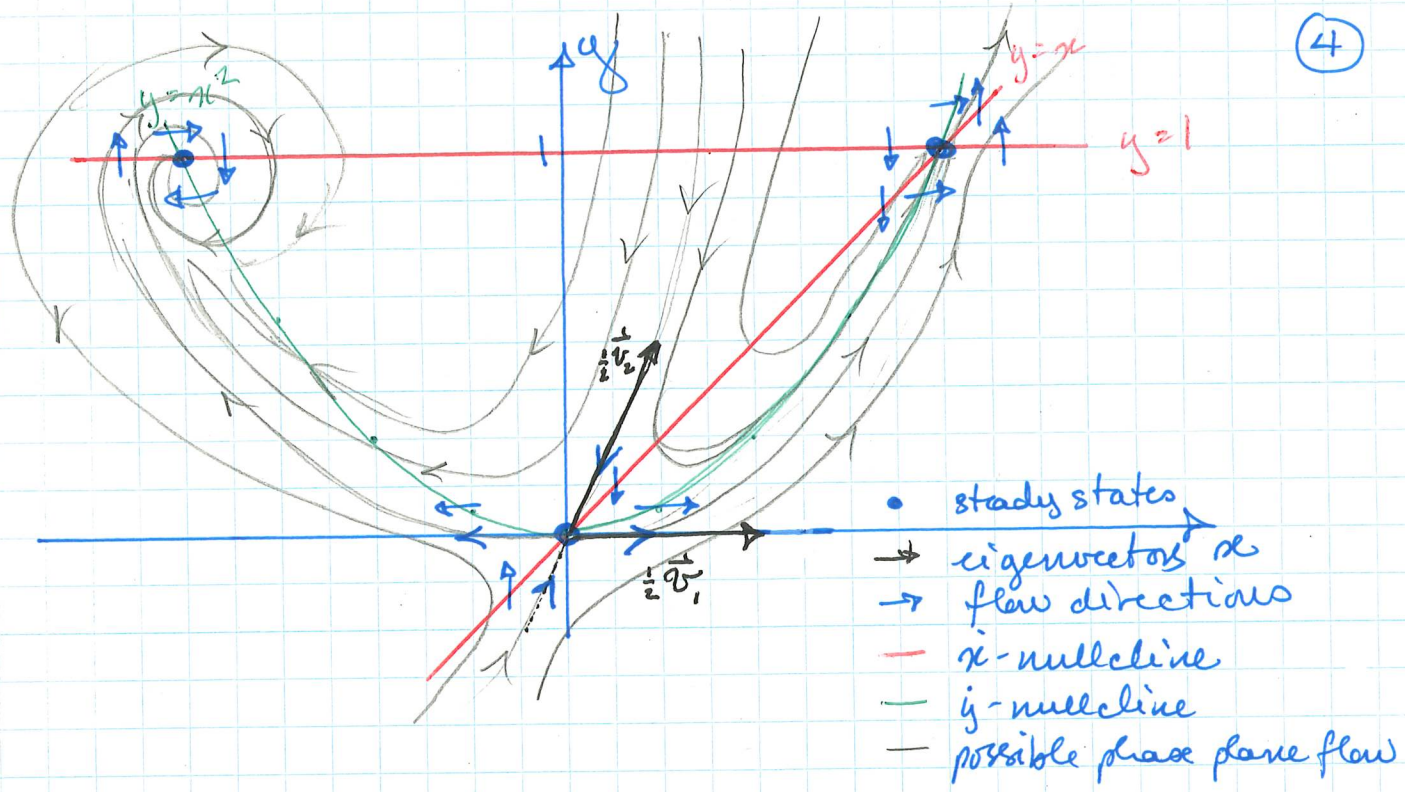 4
y
y = x
y = x²
1
y = 1
½ v⃗₂
½ v⃗₁
steady states
x
eigenvectors
flow directions
ẋ - nullcline
ẏ - nullcline
possible phase plane flow